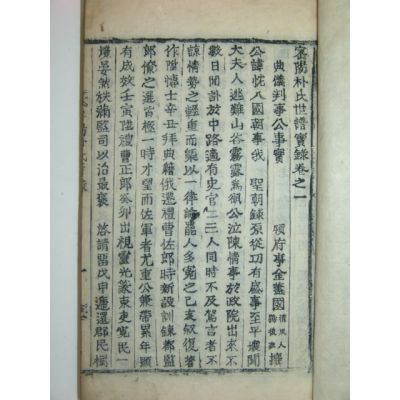 密陽朴氏世譜實錄卷之一
典儀判事公事實
領府事金蓍國 撰
公諱忱入國朝事我 聖朝錄原從功有盛事至平壤聞
大夫人逃難山谷霧露爲祟公泣陳情事於政院出來不
數日聞訃於中路適有史官二三人同時不及駕言者不
諒情勢之輕重而槩以一律論器人多寃之已亥仰復著
作陞博士辛丑拜典籍俄遷禮曹佐郎時新設訓鍊都監
郎僚之選當極一時才望而佐軍者尤重公兼帶累年顯
有成效壬寅陞禮曹正郎癸卯出視靈光篆束吏寃民一
境晏然秩滿監司以治最褒 啓請留戊申遞還郡民樹